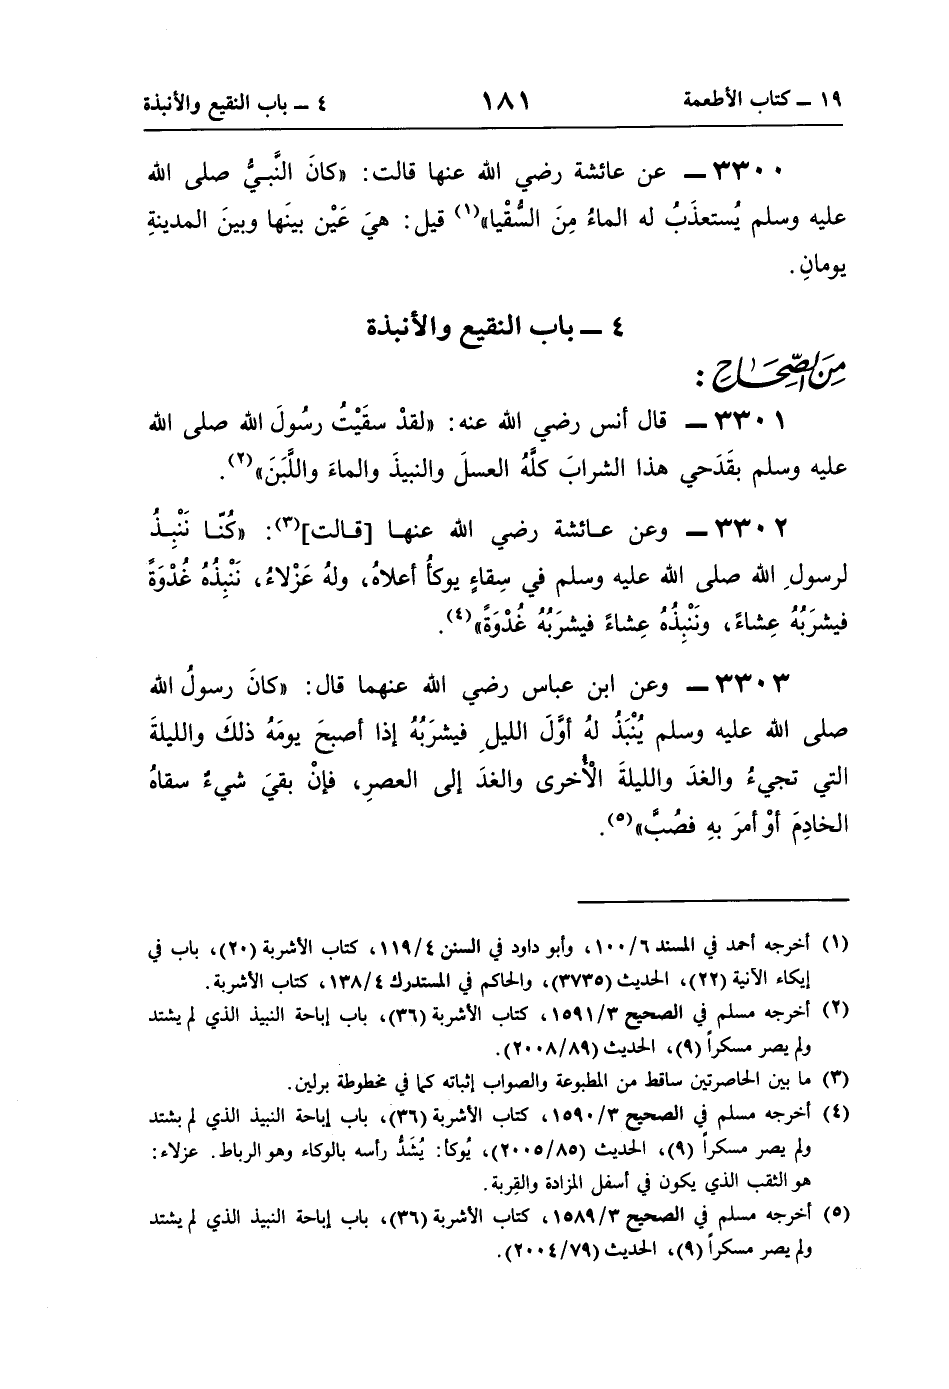 ١٩ ـ كتاب الأطعمة ١٨١ ٤ ـ باب النقيع والأنبذة
٣٣٠٠ ـ عن عائشة رضي الله عنها قالت: «كانَ النَّبيُّ صلى الله
عليه وسلم يُستعذَبُ له الماءُ مِنَ السُّقْيا»(١) قيل: هيَ عَيْن بينَها وبينَ المدينةِ
يومانِ.
٤ ـ باب النقيع والأنبذة
مِنَ الصِّحَاحِ :
٣٣٠١ ـ قال أنس رضي الله عنه: «لقدْ سقَيْتُ رسُولَ الله صلى الله
عليه وسلم بقَدَحي هذا الشرابَ كلَّهُ العسلَ والنبيذَ والماءَ واللَّبَنَ»(٢).
٣٣٠٢ ـ وعن عائشة رضي الله عنها [قالت](٣): «كُنَّا نَنْبِذُ
لرسولِ الله صلى الله عليه وسلم في سِقاءٍ يوكأُ أعلاهُ، ولهُ عَزْلاءُ، نَنْبِذُهُ غُدْوَةً
فيشرَبُهُ عِشاءً، ونَنْبِذُهُ عِشاءً فيشرَبُهُ غُدْوَةً»(٤).
٣٣٠٣ ـ وعن ابن عباس رضي الله عنهما قال: «كانَ رسولُ الله
صلى الله عليه وسلم يُنْبَذُ لهُ أوَّلَ الليلِ فيشرَبُهُ إذا أصبحَ يومَهُ ذلكَ والليلةَ
التي تجيءُ والغدَ والليلةَ الأُخرى والغدَ إلى العصرِ، فإنْ بقيَ شيءٌ سقاهُ
الخادِمَ أوْ أمرَ بهِ فصُبَّ»(٥).
(١) أخرجه أحمد في المسند ١٠٠/٦، وأبو داود في السنن ١١٩/٤، كتاب الأشربة (٢٠)، باب في
إيكاء الآنية (٢٢)، الحديث (٣٧٣٥)، والحاكم في المستدرك ١٣٨/٤، كتاب الأشربة.
(٢) أخرجه مسلم في الصحيح ١٥٩١/٣، كتاب الأشربة (٣٦)، باب إباحة النبيذ الذي لم يشتد
ولم يصر مسكراً (٩)، الحديث (٢٠٠٨/٨٩).
(٣) ما بين الحاصرتين ساقط من المطبوعة والصواب إثباته كما في مخطوطة برلين.
(٤) أخرجه مسلم في الصحيح ١٥٩٠/٣، كتاب الأشربة (٣٦)، باب إباحة النبيذ الذي لم يشتد
ولم يصر مسكراً (٩)، الحديث (٢٠٠٥/٨٥)، يُوكأ: يُشَدُّ رأسه بالوكاء وهو الرباط. عزلاء:
هو الثقب الذي يكون في أسفل المزادة والقِربة.
(٥) أخرجه مسلم في الصحيح ١٥٨٩/٣، كتاب الأشربة (٣٦)، باب إباحة النبيذ الذي لم يشتد
ولم يصر مسكراً (٩)، الحديث (٢٠٠٤/٧٩).